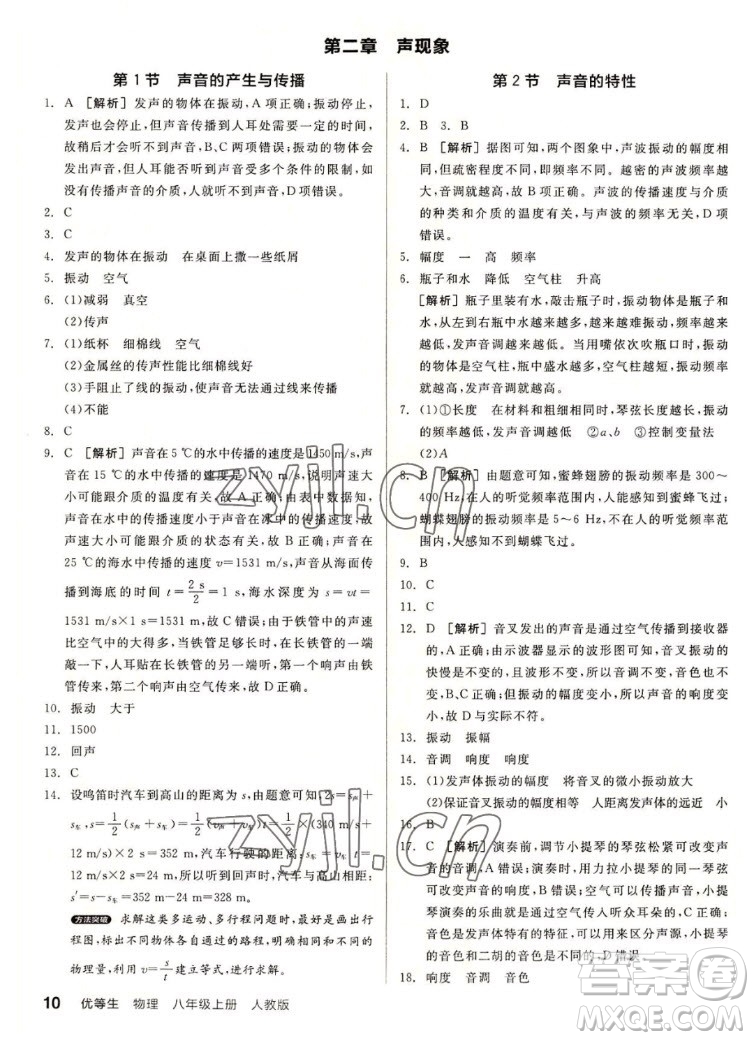 第二章 声现象
第1节 声音的产生与传播
1. A [解析] 发声的物体在振动,A项正确;振动停止,
发声也会立即停止,但声音传播到人耳处需要一定的时间,
故稍后才会消失,B、C两项错误;振动的物体会
发出声音,人耳能否听到声音受多个条件的限制,如
没有传播声音的介质,人就听不到声音,D项错误。
2. C
3. C
4. 发声的物体在振动 在桌面上撒一些纸屑
5. 振动 空气
6. (1)减弱 真空
(2)传声
7. (1)纸杯 细棉线 空气
(2)金属丝的传声性能比细棉线好
(3)手阻止了线的振动,使声音无法通过线传播
(4)不能
8. C
9. C [解析] 声音在5 ℃的水中传播的速度是1450 m/s,声
音在15 ℃的水中传播的速度是1470 m/s,说明声速
大小可能跟介质的温度有关,故A正确;由表中数据知,
声音在水中的传播速度小于声音在冰中的传播速度,故
声速大小可能和介质的状态有关,故B正确;声音在
25 ℃的海水中传播的速度v=1531 m/s,声音从海面传
播到海底的时间t=2 s/2=1 s,海水深度为s=vt=
1531 m/s×1 s=1531 m,故C错误;由于铁管中的声
速比空气中的大得多,当铁管足够长时,在铁管的一端
敲一下,声音先从铁管传来,所以在另一端听到两次声音,第一个响声由铁
管传来,第二个响声由空气传来,故D正确。
10. 振动 大于
11. 1500
12. 回声
13. C
14. 设鸣笛时汽车到高山的距离为s,由题意可知:2s=s声+
s车,s=1/2(s声+s车)=1/2(v声t+v车t)=1/2×(340 m/s+
12 m/s)×2 s=352 m,听到回声时,汽车与高山相距
s′=s-s车=352 m-24 m=328 m。
方法突破 求解这类多运动、多行程问题时,最好画出行
程图,分析出不同物体在相同时间内通过的路程,再利用
物理量,利用v=s/t建立等式,进行求解。
第2节 声音的特性
1. D
2. B 3. B
4. B [解析] 据图可知,两个图象中,声波的振动幅度相
同,但疏密程度不同,即频率不同。越密的声波频率越
大,音调就越高,故B正确。声波的传播速度与介质
的种类和介质的温度有关,与声波的频率无关,D项
错误。
5. 幅度 一 高 频率
6. 瓶子和水 降低 空气柱 升高
[解析] 瓶子里装有水,敲击瓶子时,振动的是瓶子和
水,从左到右瓶中水越来越多,越来越难振动,频率越来
越低,音调就越来越低。当用嘴依次吹瓶口时,振动
的物体是空气柱,瓶中盛水越多,空气柱越短,频率越
高,发出声音的音调就越高。
7. (1)①长度 在材料和粗细相同时,琴弦长度越长,振
动越慢,发出声音的音调就越低 ②a、b ③控制变量法
(2)A
8. B [解析] 由题意可知,蜜蜂翅膀的振动频率是300～
400 Hz,在人的听觉频率范围内,人能听到蜜蜂飞过;
蝴蝶翅膀的振动频率是5～6 Hz,不在人的听觉频率
范围内,所以感觉不到蝴蝶飞过。
9. B
10. C
11. C
12. D [解析] 音叉发出的声音是通过空气传播到接收器
的,A正确;由示波器显示的波形图可知,音叉振动的
快慢是不变的,所以音调不变,音叉振动的幅度变
小,所以响度变小,B、C正确;音叉的振动频率不变,
D与实际不符。
13. 振动 振幅
14. 音调 响度 响度
15. (1)发声体振动的幅度 将音叉的微小振动放大
(2)保证音叉振动的幅度不变 人距离发声体的远近 小
16. B
17. C [解析] 演奏前,调节小提琴琴弦的松紧可改变声
音的音调,A错误;演奏时,用力拉小提琴可改变声音
的响度,B错误;音乐厅里的观众欣赏小提琴曲时,小提
琴演奏的乐曲是通过空气传入听众耳朵的,C正确;
音色是由发声体本身决定的,可以用来区分声源,小提
琴的音色和二胡的音色不同,D错误。
18. 响度 音调 音色
10 优等生 物理 八年级上册 人教版
zyjl.cn
zyjl.cn
作业精灵